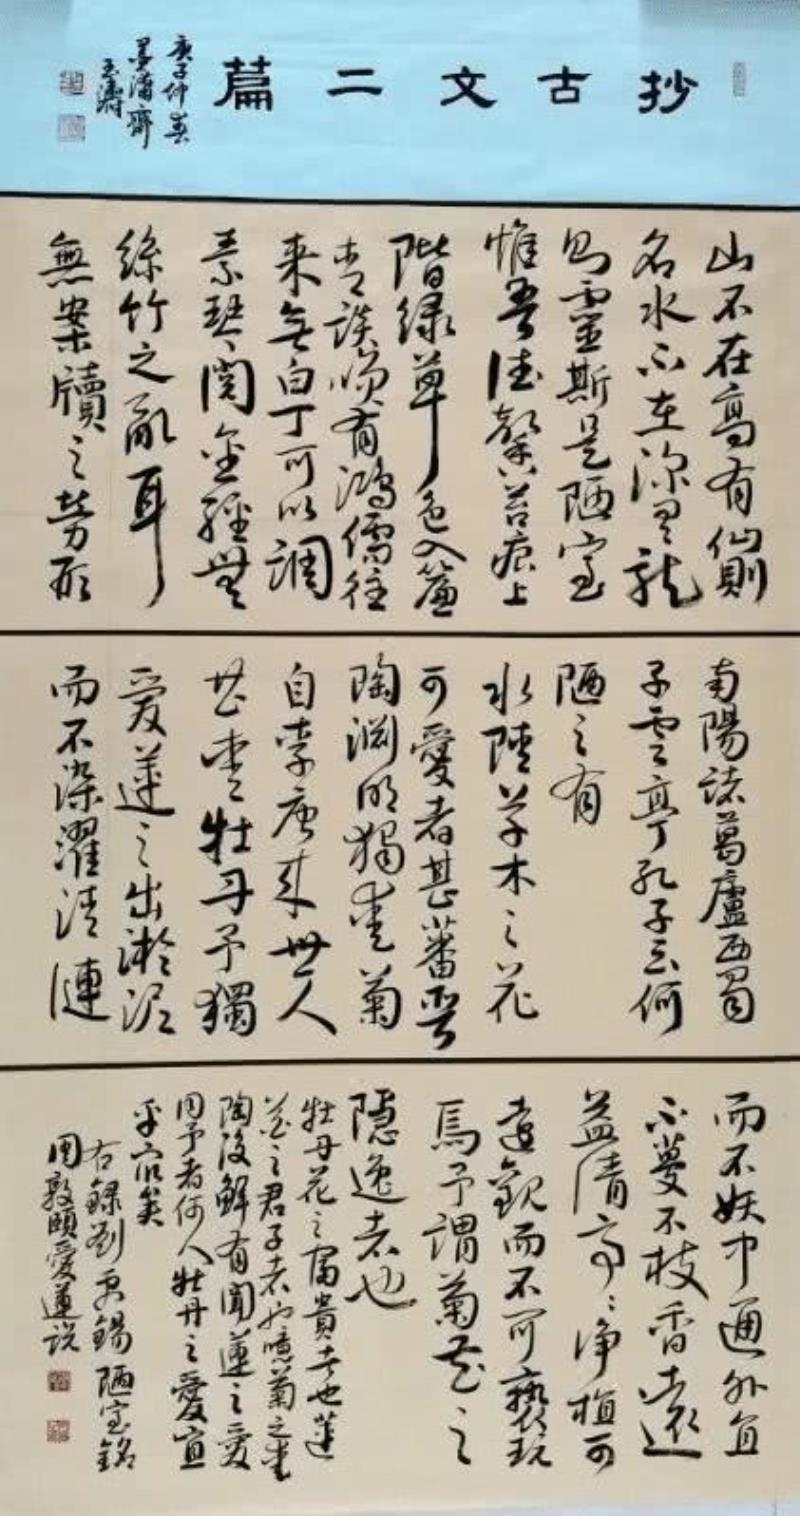 抄古文二篇
庚子仲春
墨濤齋
玉濤
山不在高有仙則
名水不在深有龍
則靈斯是陋室
惟吾德馨苔痕上
階緑草色入簾
青談笑有鴻儒往
来無白丁可以調
素琴閲金經無
絲竹之亂耳
無案牘之勞形
南陽諸葛廬西蜀
子雲亭孔子云何
陋之有
水陸草木之花
可愛者甚蕃晉
陶淵明獨愛菊
自李唐来世人
甚愛牡丹予獨
愛蓮之出淤泥
而不染濯清漣
而不妖中通外直
不蔓不枝香遠
益清亭亭净植可
遠觀而不可褻玩
焉予謂菊花之
隱逸者也
牡丹花之富貴者也蓮
花之君子者也噫菊之愛
陶後鮮有聞蓮之愛
同予者何人牡丹之愛宜
乎衆矣
右錄劉禹錫陋室銘
周敦頤愛蓮説